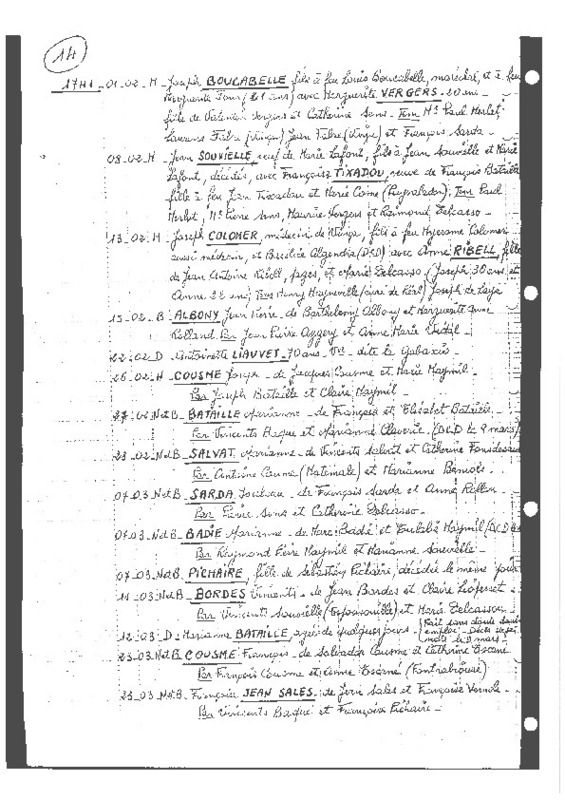 14
1741_01_02_M_ Joseph BOUCABELLE, fils à feu Louis Boucabelle, maréchal, et à feu
Marguerite (21 ans) avec Marguerite VERGERS_20 ans_
fille de Valentin Vergers et Catherine Sans_ Tem Mr Paul Merlat,
Laurens Fabre Jean Fabre et François Sarda_
08_02_M_ Jean SOUVIELLE, veuf de Marie Lafont, fils à Jean Souvielle et Marie
Lafont, décédés, avec Françoise TIXADOU, veuve de François Bataille
fille à feu Jean Tixadou et Marie Come (Puyvaledor)_ Tem Paul
Merlat, Mr Pierre Sans, Maurice Vergers et Raimond Delcasso_
13_02_M_ Joseph COLOMER, médecin de Vinça, fils à feu Colomer
aussi médecin, et (DCD) avec Anne RIBELL, fille
de Jean Antoine Ribell, pages, et Marie Delcasso_ (Joseph 30 ans et
Anne 22 ans) Tem Joseph de Lazé
15_02_B_ ALBONY Jean Pierre_ de Barthelemy Albony et Marguerite Anne
Rolland_ Par Jean Pierre et Anne Marie Vidal_
22_02_D_ Antoinette LIAUVET_70 ans_Vve_ dite la
26_02_N_ COUSME Joseph_ de Jacques Cousme et Marie Maymil_
Par Joseph Bataille et Claire Maymil_
27_02_NetB_ BATAILLE Marianne_ de François et Elisabet Bataille_
Par Vincents Baque et Marianne (DCD le 8 mars)
28_02_NetB_ SALVAT, Marianne_ de Vincents Salvat et Catherine
Par Antoine Cousme (Matemale) et Marianne
07_03_NetB_ SARDA, _ de François Sarda et Anne
Par Pierre Sans et Catherine Delcasso_
07_03_NetB_ BADIE Marianne_ de Marc Badie et Eulalie Maymil (DCD
Par Raymond Pierre Maymil et Marianne Souvielle_
07_03_NetB_ PICHAIRE, fille de Sébastien Pichaire, décédée le même jour
11_03_NetB_ BORDES Vincents_ de Jean Bordes et Claire
Par Vincents Souvielle (Espousouille) et Marie Delcasso_
12_03_D_ Marianne BATAILLE, agée de quelques jours_ (Fait sans doute
23_03_NetB_ COUSME François_ de Salvador Cousme et Catherine Escané
Par François Cousme et Anne Escané (Fontrabiouse)
23_03_NetB_ Françoise JEAN SALES_ de Jean Sales et Françoise
Par Vincents Baque et Françoise Pichaire_